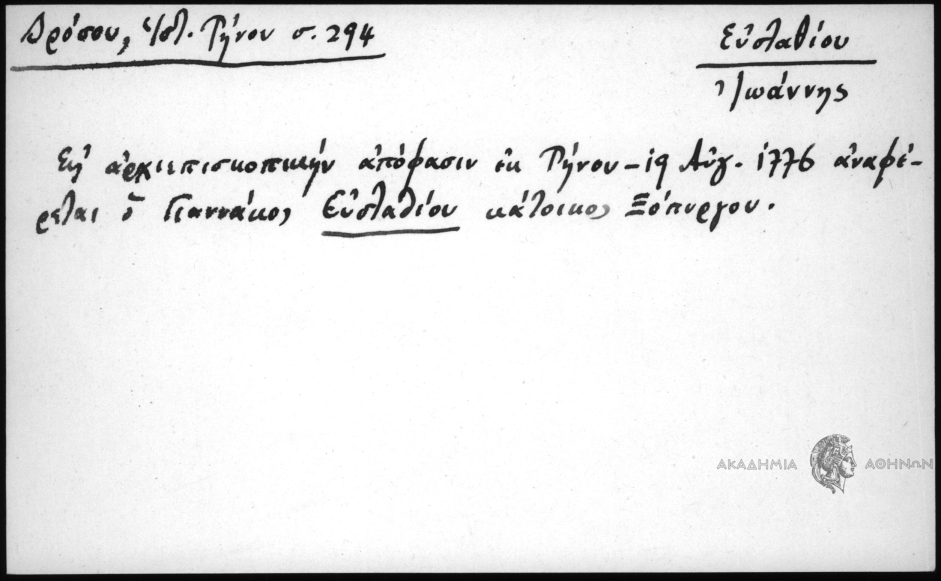 Δρόσου, Ἱστ. Τήνου σ. 294
Εὐσταθίου
Ἰωάννης
Εἰς ἀρχιεπισκοπικήν ἀπόφασιν ἐκ Τήνου - 19 Αὐγ. 1776 ἀναφέ-
ρεται ὁ Γιαννάκος Εὐσταθίου κάτοικος Ξόπυργου.
ΑΚΑΔΗΜΙΑ ΑΘΗΝΩΝ